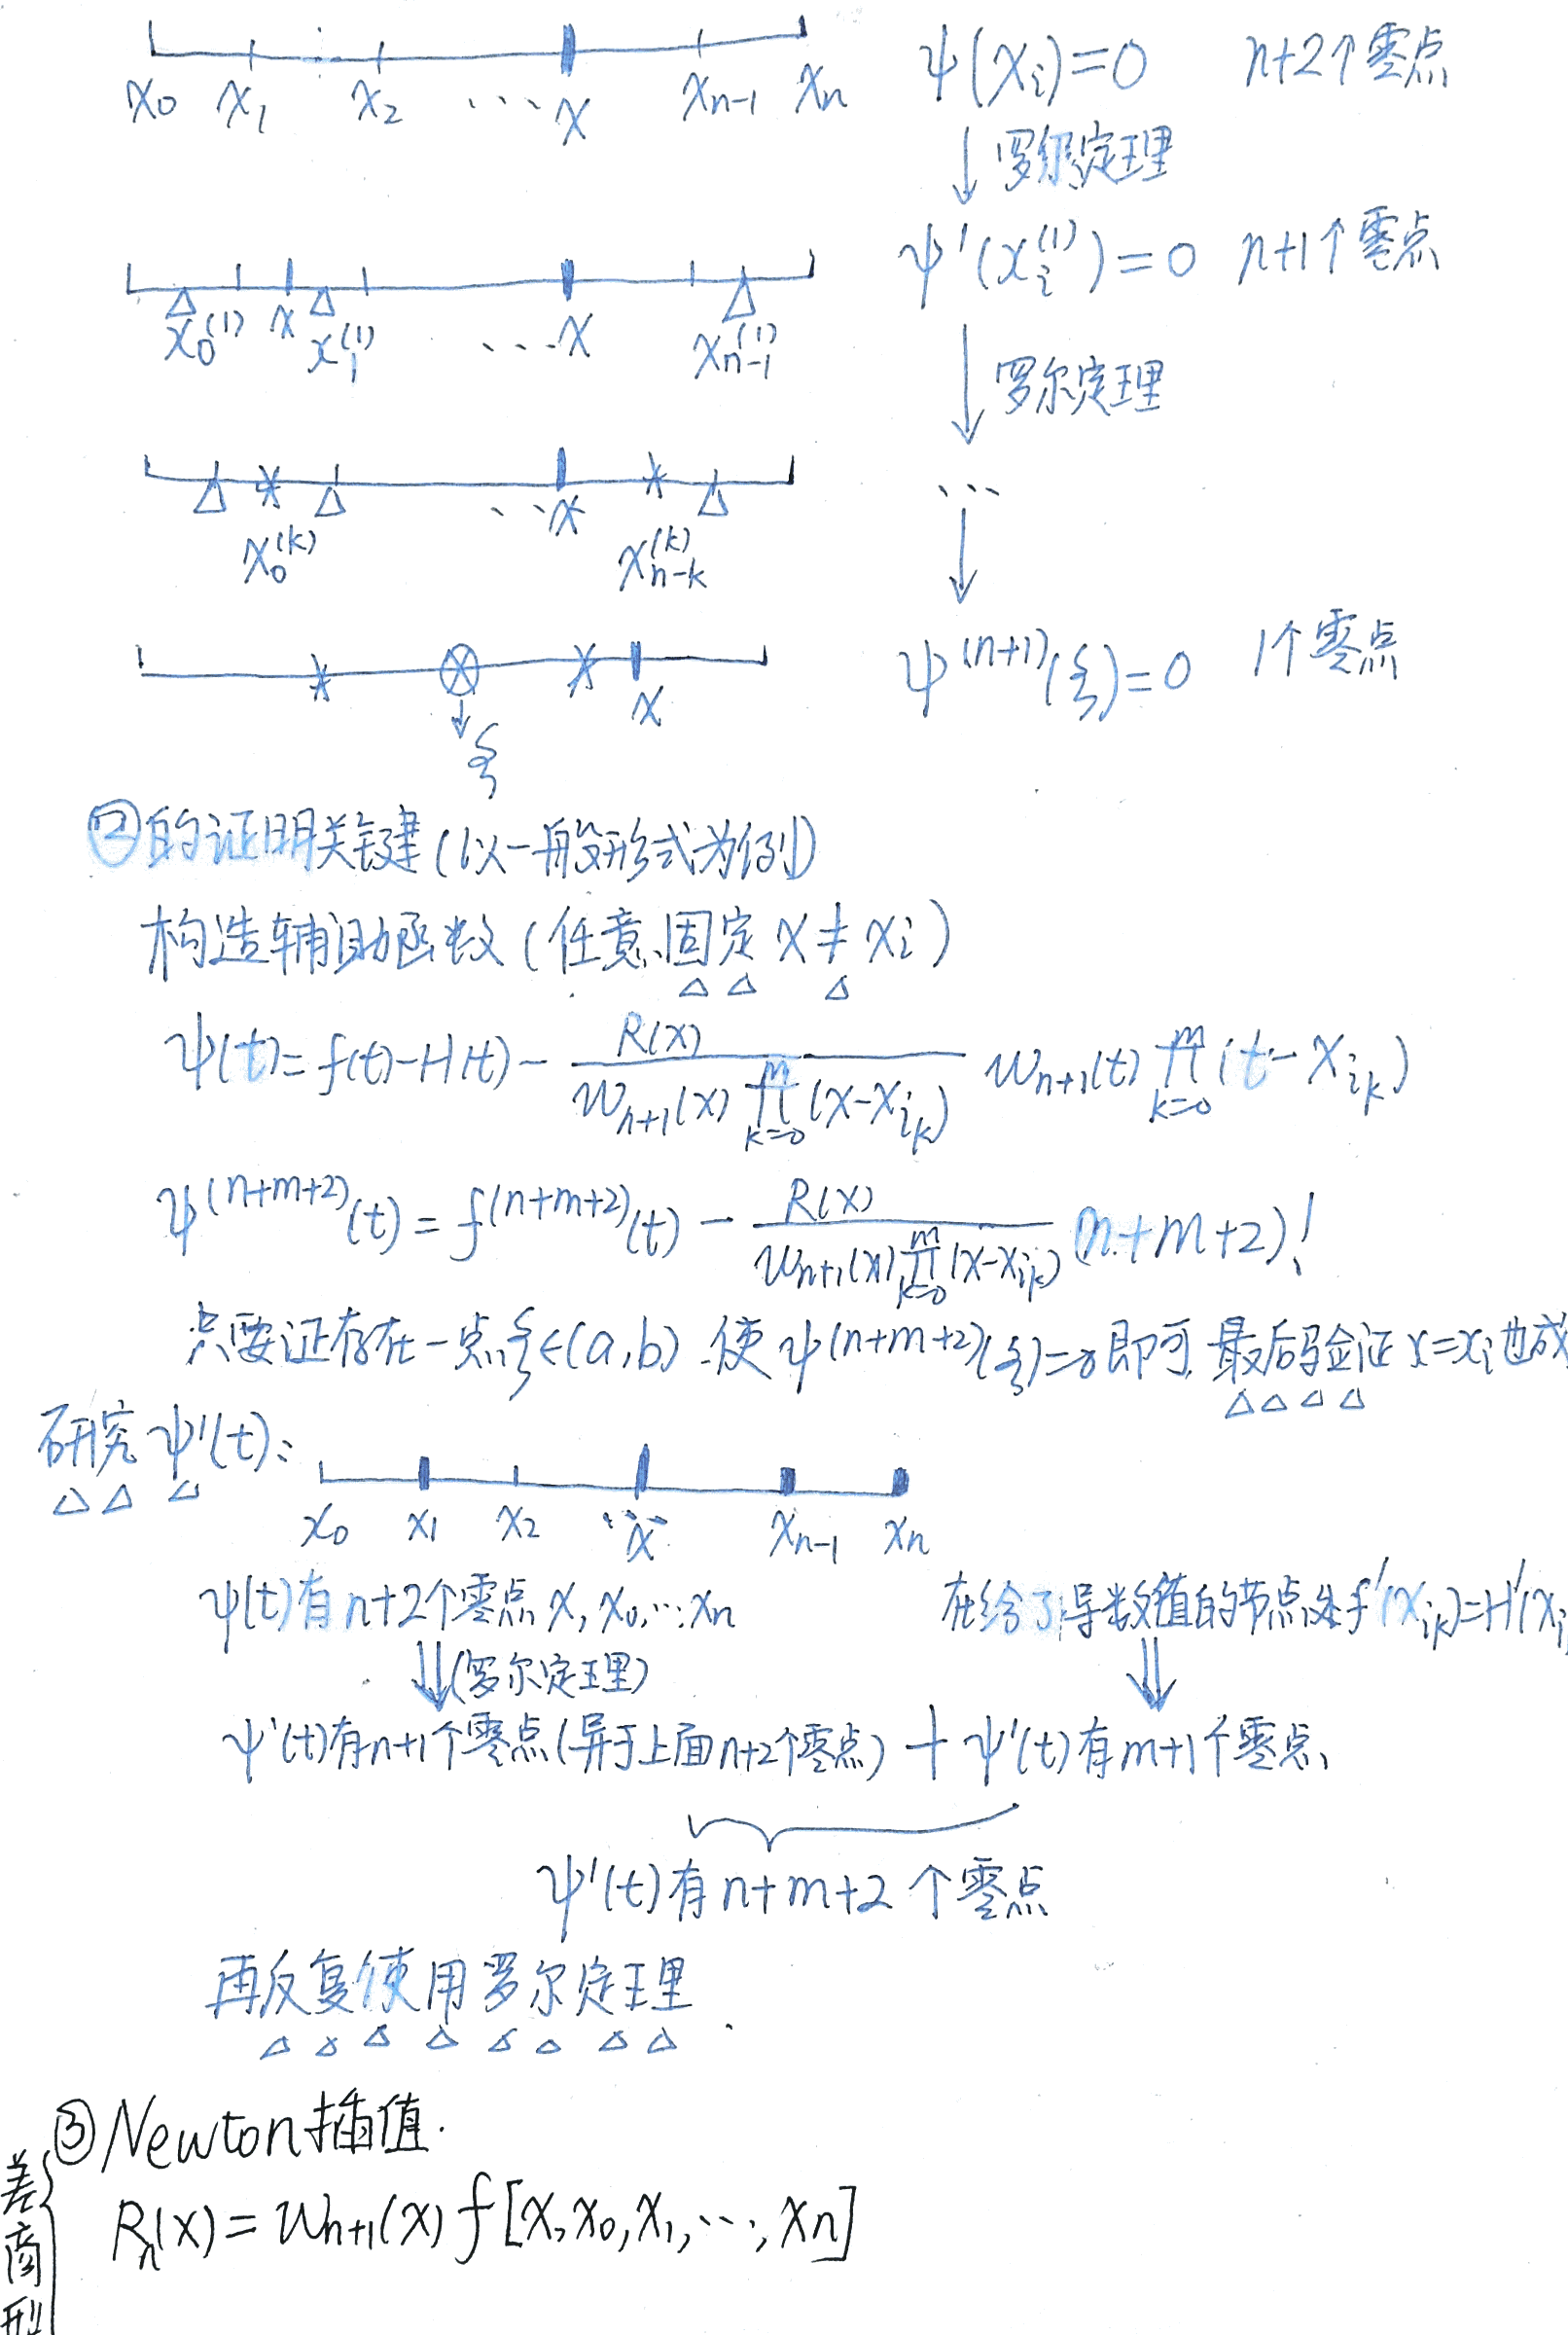 x₀ x₁ x₂ ... x x_{n-1} x_n ψ(x_i)=0 n+2个零点
↓罗尔定理
ψ'(x_i^{(1)})=0 n+1个零点
x₀^{(1)} x x₁^{(1)} ... x x_{n-1}^{(1)}
↓罗尔定理
... x ...
x₀^{(k)} x_{n-k}^{(k)} ↓
ψ^{(n+1)}(ξ)=0 1个零点
x
ξ
②的证明关键(以一般形式为例)
构造辅助函数(任意、固定 x≠x_i)
ψ(t)=f(t)-H(t)-\frac{R(x)}{w_{n+1}(x)∏_{k=0}^{m}(x-x_{i_k})} w_{n+1}(t)∏_{k=0}^{m}(t-x_{i_k})
ψ^{(n+m+2)}(t)=f^{(n+m+2)}(t)-\frac{R(x)}{w_{n+1}(x)∏_{k=0}^{m}(x-x_{i_k})}(n+m+2)!
只要证存在一点ξ∈(a,b).使ψ^{(n+m+2)}(ξ)=0即可.最后验证x=x_i也成
研究ψ'(t):
x₀ x₁ x₂ ... x x_{n-1} x_n
ψ(t)有n+2个零点 x, x₀,…, x_n 在给了导数值的节点处f'(x_{i_k})=H'(x_i
⇓(罗尔定理) ⇓
ψ'(t)有n+1个零点(异于上面n+2个零点) + ψ'(t)有m+1个零点
ψ'(t)有n+m+2个零点
再反复使用罗尔定理
③Newton插值.
差商型
R_n(x)=w_{n+1}(x)f[x,x₀,x₁,…,x_n]